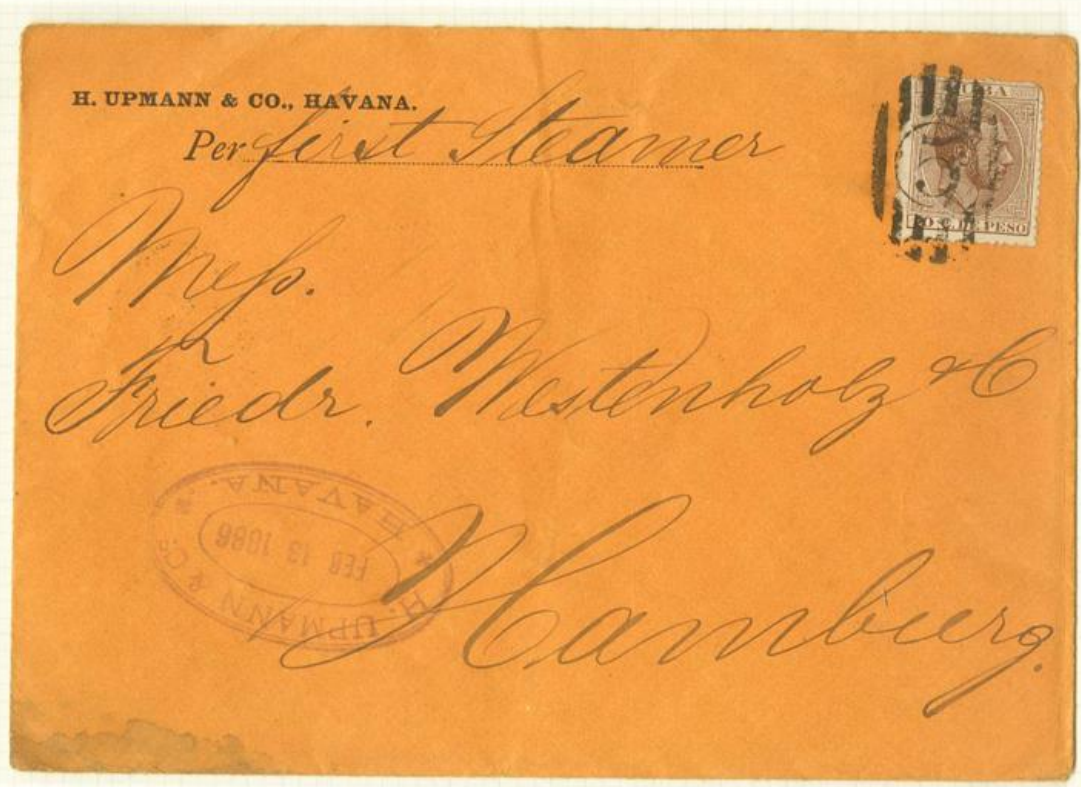 H. UPMANN & CO., HAVANA.
Per first Steamer
CUBA
10 C. DE PESO
Mess.
Friedr. Westenholz & C
Hamburg.
H. UPMANN & Co.
FEB 13 1886
* HAVANA. *